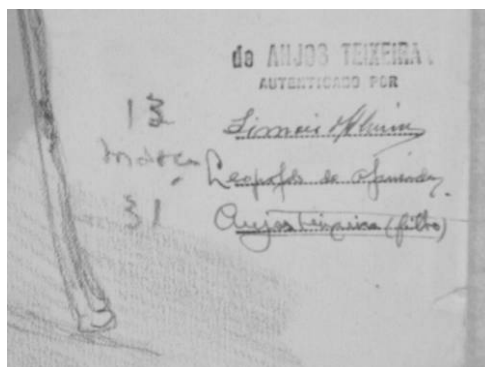 de ANJOS TEIXEIRA
AUTENTICADO POR
13
Março
31
Leopoldo de Almeida
Anjos Teixeira (filho)